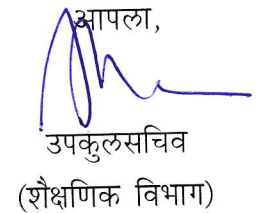 आपला,
उपकुलसचिव
(शैक्षणिक विभाग)